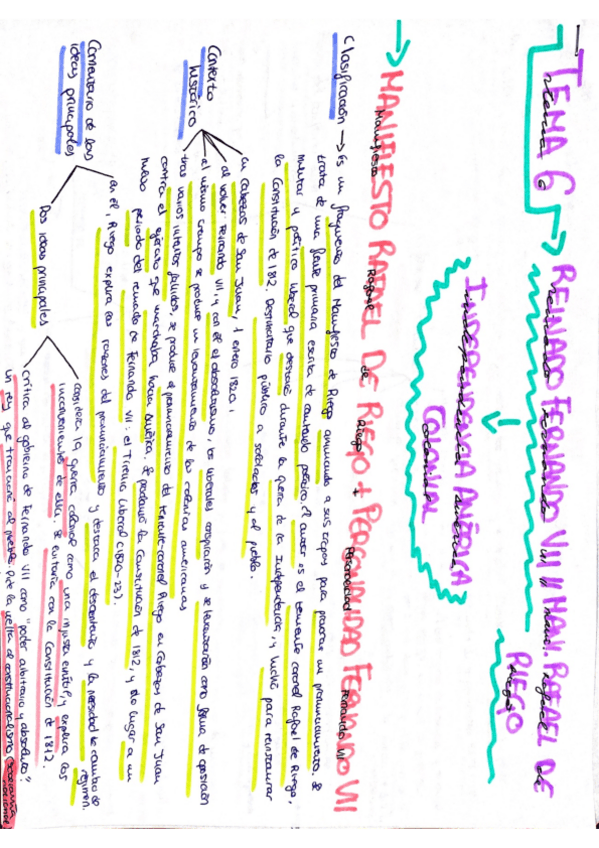 → TEMA 6 → REINADO FERNANDO VII || MANI. RAFAEL DE
RIEGO
INDEPENDENCIA AMÉRICA
COLONIAL
→ MANIFIESTO RAFAEL DE RIEGO + PERSONALIDAD FERNANDO VII
Clasificación → Es un fragmento del Manifiesto de Riego anunciado a sus tropas para provocar un pronunciamiento, se
trata de una fuente primaria escrita de contenido político, el autor es el teniente coronel Rafael de Riego,
militar y político liberal que destacó durante la guerra de la Independencia, y luchó para reinstaurar
la Constitución de 1812. Destinatario público a soldados y el pueblo.
Contexto
histórico
en Cabezas de San Juan, 1 enero 1820,
al volver Fernando VII y con él el absolutismo, los liberales conspiraron y se levantarían como forma de oposición
al mismo tiempo se produce un levantamiento de las colonias americanas
tras varios intentos fallidos, se produce el pronunciamiento del teniente-coronel Riego en Cabezas de San Juan
contra el ejército que marchaba hacia América, se proclamó la Constitución de 1812, y dio lugar a un
nuevo período del reinado de Fernando VII: el Trienio Liberal (1820-23).
Comentario de las
ideas principales
en el, Riego explica las razones del pronunciamiento y destaca el descontento y la necesidad de cambio de
régimen.
Dos ideas principales
considera la guerra colonial como una injusta e inútil, y explica los
inconvenientes de ella, se evitaría con la Constitución de 1812.
crítica al gobierno de Fernando VII como "poder arbitrario y absoluto".
un rey que traicionó al pueblo. Pide la vuelta al constitucionalismo soberanía
nacional